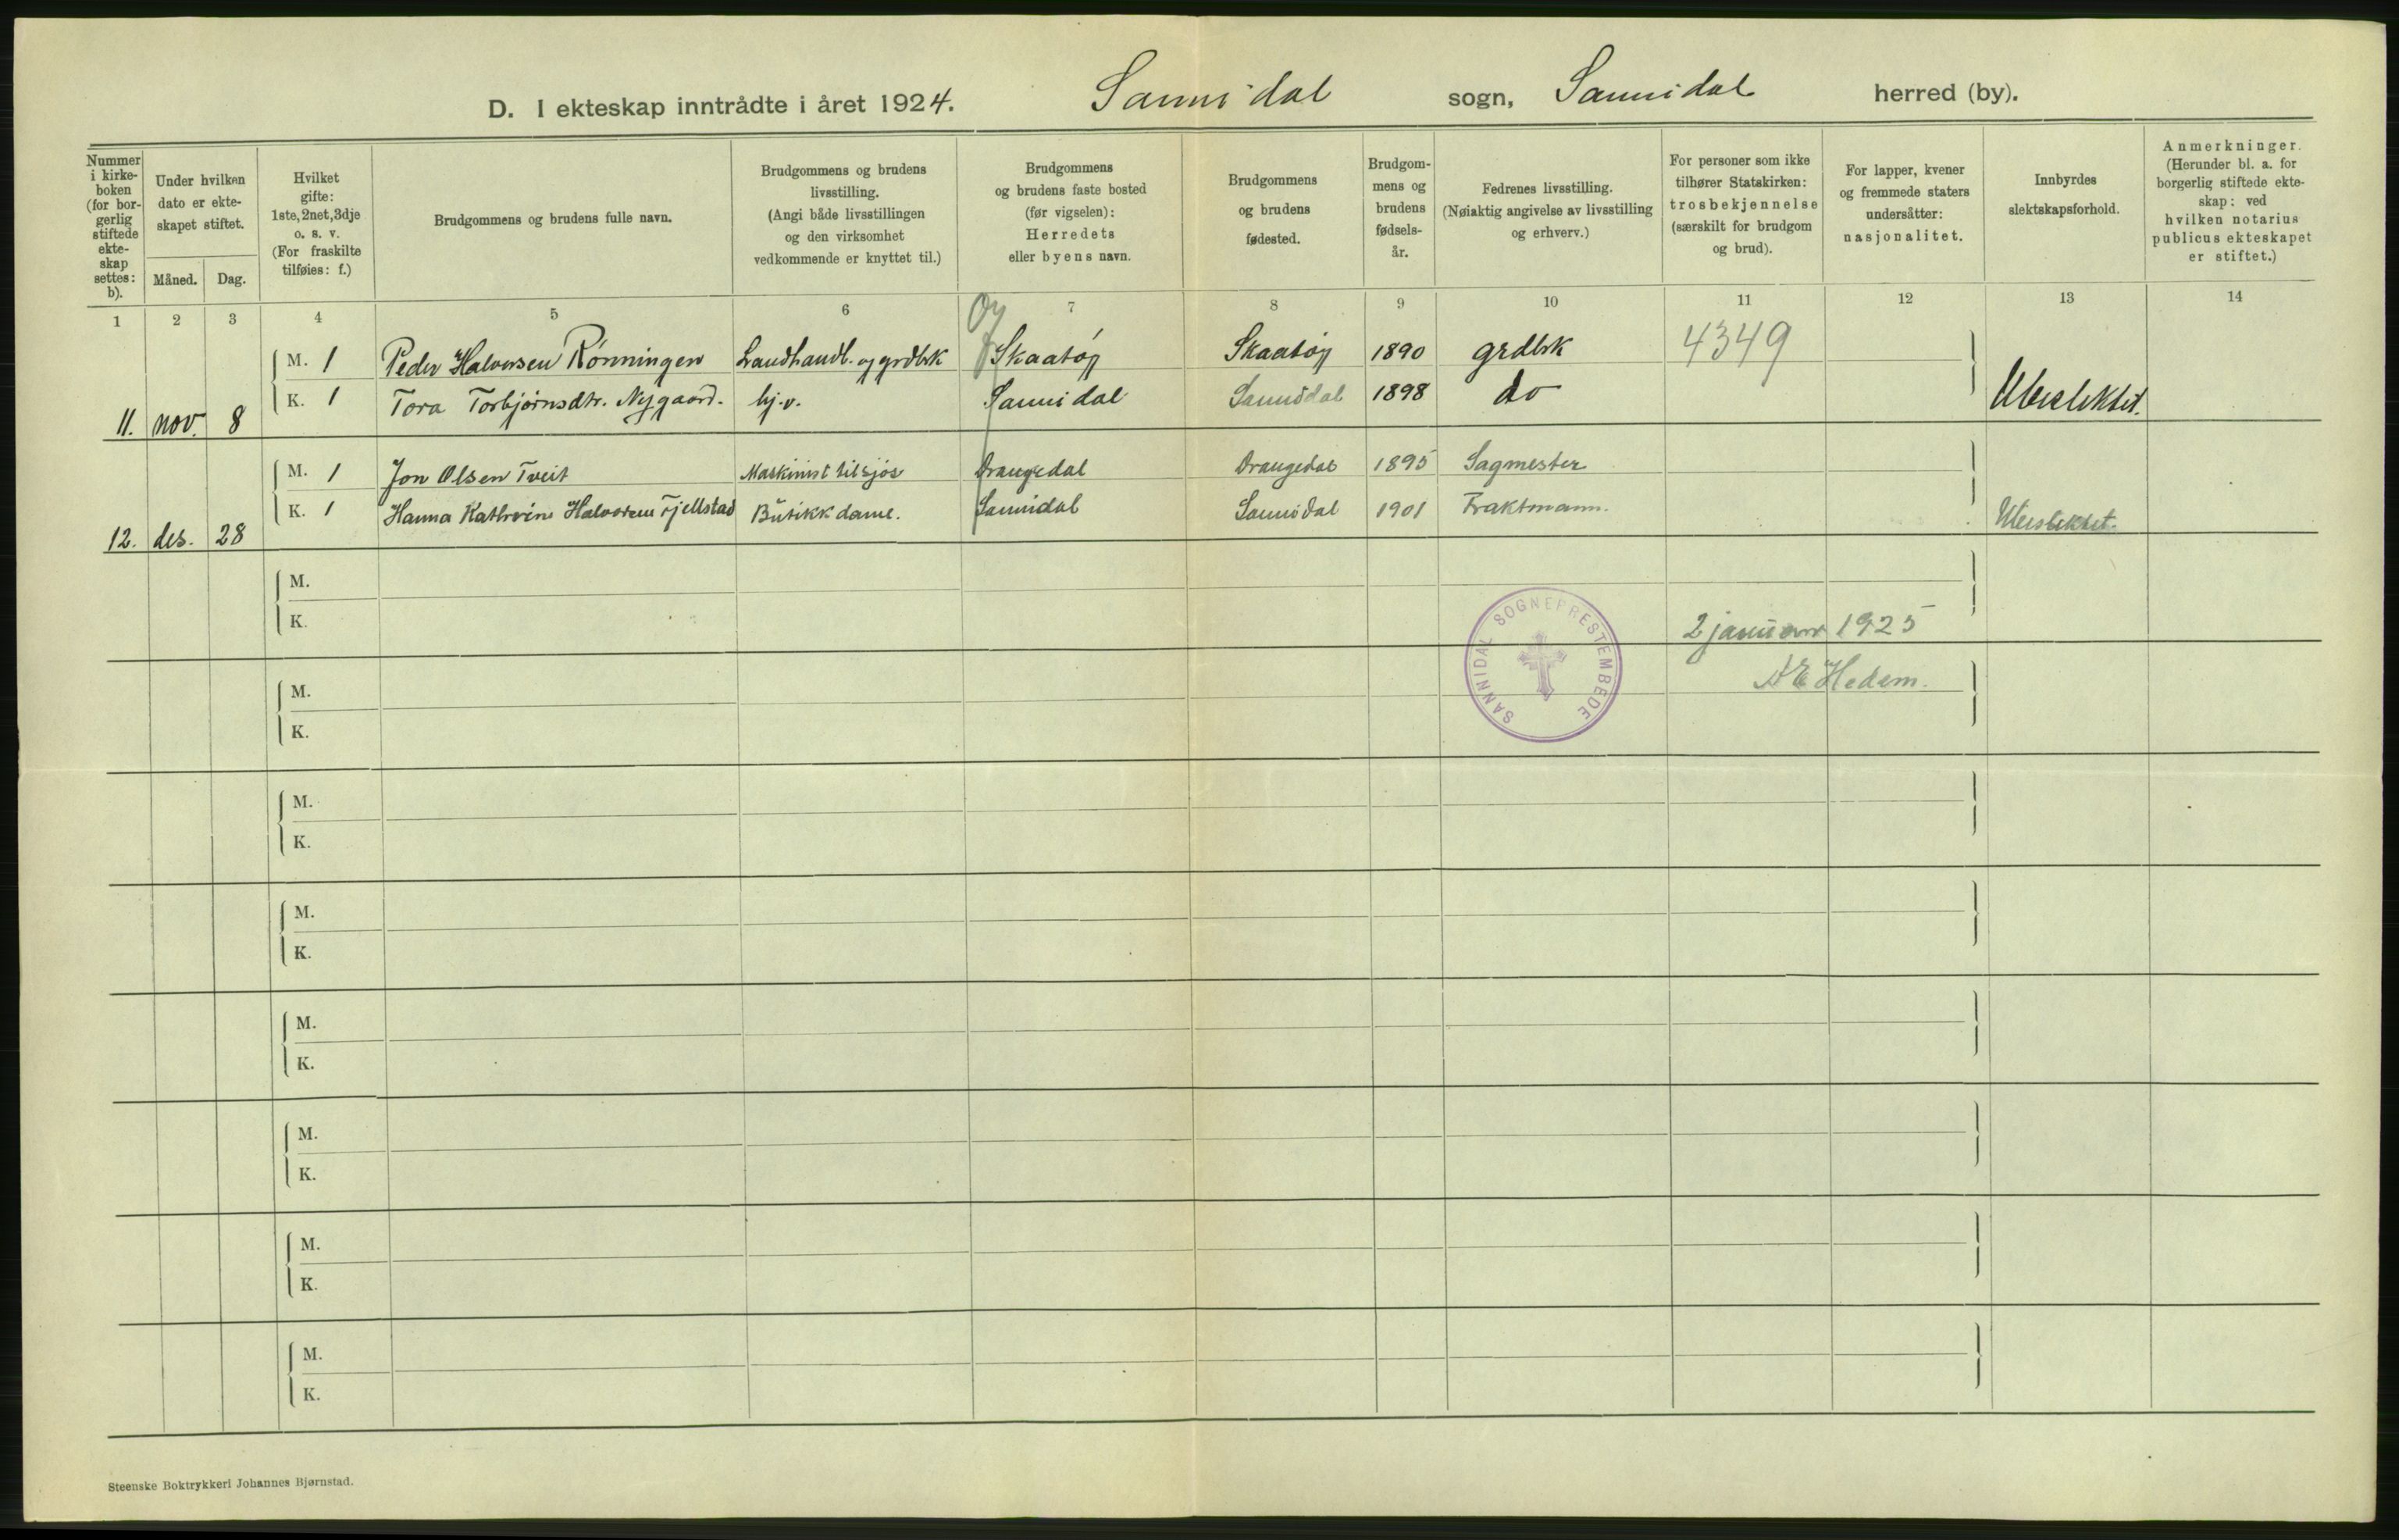 D. I ekteskap inntrådte i året 1924. Sannidal sogn, Sannidal herred (by).
Nummer i kirkeboken (for borgerlig stiftede ekteskap settes: b).
Under hvilken dato er ekteskapet stiftet.
Måned. Dag.
Hvilket gifte: 1ste, 2net, 3dje o. s. v. (For fraskilte tilføies: f.)
Brudgommens og brudens fulle navn.
Brudgommens og brudens livsstilling. (Angi både livsstillingen og den virksomhet vedkommende er knyttet til.)
Brudgommens og brudens faste bosted (før vigselen): Herredets eller byens navn.
Brudgommens og brudens fødested.
Brudgommens og brudens fødselsår.
Fedrenes livsstilling. (Nøiaktig angivelse av livsstilling og erhverv.)
For personer som ikke tilhører Statskirken: trosbekjennelse (særskilt for brudgom og brud).
For lapper, kvener og fremmede staters undersåtter: nasjonalitet.
Innbyrdes slektskapsforhold.
Anmerkninger. (Herunder bl. a. for borgerlig stiftede ekteskap: ved hvilken notarius publicus ekteskapet er stiftet.)
1 2 3 4 5 6 7 8 9 10 11 12 13 14
M. 1 Peder Halvorsen Rønningen Landhandl. og grdbrk Skaatøy Skaatøy 1890 grdbrk 4349
K. 1 Tora Torbjørnsdtr. Nygaard. hj.v. Sannidal Sannidal 1898 do Ubeslektet.
11. nov. 8
M. 1 Jon Olsen Tveit Maskinist tilsjøs Drangedal Drangedal 1895 Sagmester
K. 1 Hanna Kathrine Halvorsen Fjellstad Butikkdame. Sannidal Sannidal 1901 Fraktmann. Ubeslektet.
12. des. 28
M.
K.
SANNIDAL SOGNEPRESTEMBEDE
2 januar 1925
Hedem.
M.
K.
M.
K.
M.
K.
M.
K.
M.
K.
M.
K.
M.
K.
Steenske Boktrykkeri Johannes Bjørnstad.